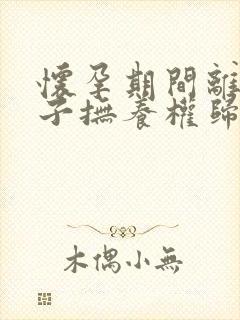 懷孕期間離
子撫養權歸
木偶小無